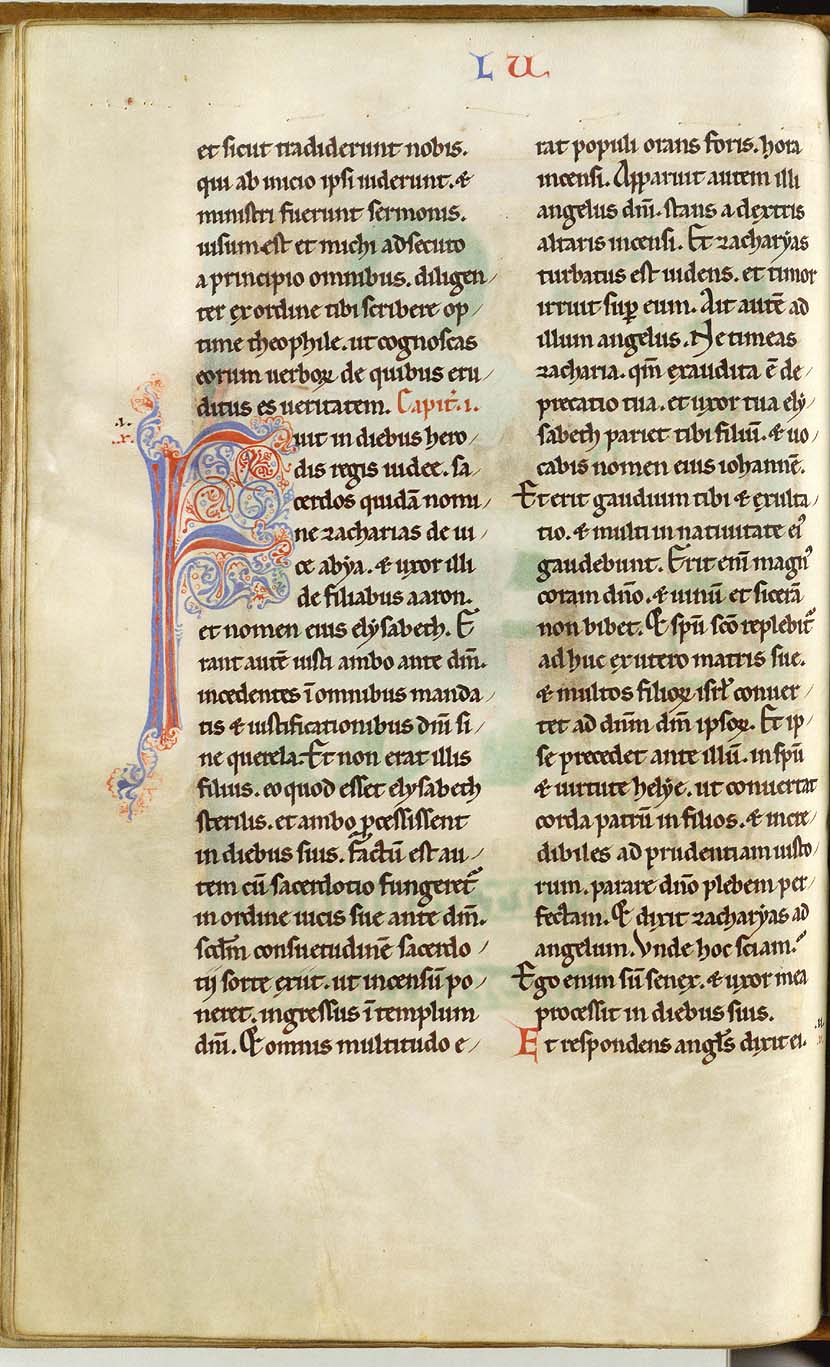 LU
et sicut tradiderunt nobis.
qui ab inicio ipsi uiderunt. &
ministri fuerunt sermonis.
uisum est et michi adsecuto
a principio omnibus. diligen
ter ex ordine tibi scribere op
time theophile. ut cognoscas
eorum uerboꝝ de quibus eru
ditus es ueritatem. Capit̄. i.
.x.
Fuit in diebus hero
dis regis iudee. sa
cerdos quidā nomi
ne zacharias de ui
ce abẏa. & uxor illi
de filiabus aaron.
et nomen eius elẏsabeth. E
rant autē iusti ambo ante dm̄.
incedentes ī omnibus manda
tis & iustificationibus dn̄i si
ne querela. Et non erat illis
filius. eo quod esset elẏsabeth
sterilis. et ambo ꝓcessissent
in diebus suis. factū est au
tem cū sacerdotio fungeret᷑
in ordine uicis sue ante dm̄.
scd̄m consuetudinē sacerdo
tij sorte exiit. ut incensū po
neret. ingressus ī templum
dn̄i. Et omnis multitudo e
rat populi orans foris. hora
incensi. Apparuit autem illi
angelus dn̄i. stans a dextris
altaris incensi. Et zacharẏas
turbatus est uidens. et timor
irruit suꝑ eum. Ait autē ad
illum angelus. Ne timeas
zacharia. qm̄ exaudita ē de
precatio tua. et uxor tua elẏ
sabeth pariet tibi filiū. & uo
cabis nomen eius iohannē.
Et erit gaudium tibi & exulta
tio. & multi in natiuitate ei᷒
gaudebunt. Erit eni̅ magn᷒
coram dn̄o. & uinū et sicerā
non bibet. Et spū scō replebit᷑
adhuc ex utero matris sue.
& multos filioꝝ isrl̄ conuer
tet ad dnm̄ dm̄ ipsoꝝ. Et ip
se precedet ante illū. in spū
& uirtute helẏe. ut conuertat
corda patrū in filios. & incre
dibiles ad prudentiam iusto
rum. parare dn̄o plebem per
fectam. Et dixit zacharẏas ad
angelum. Vnde hoc sciam.
Ego enim sū senex. & uxor mea
processit in diebus suis.
Et respondens angl̄s dixit ei.